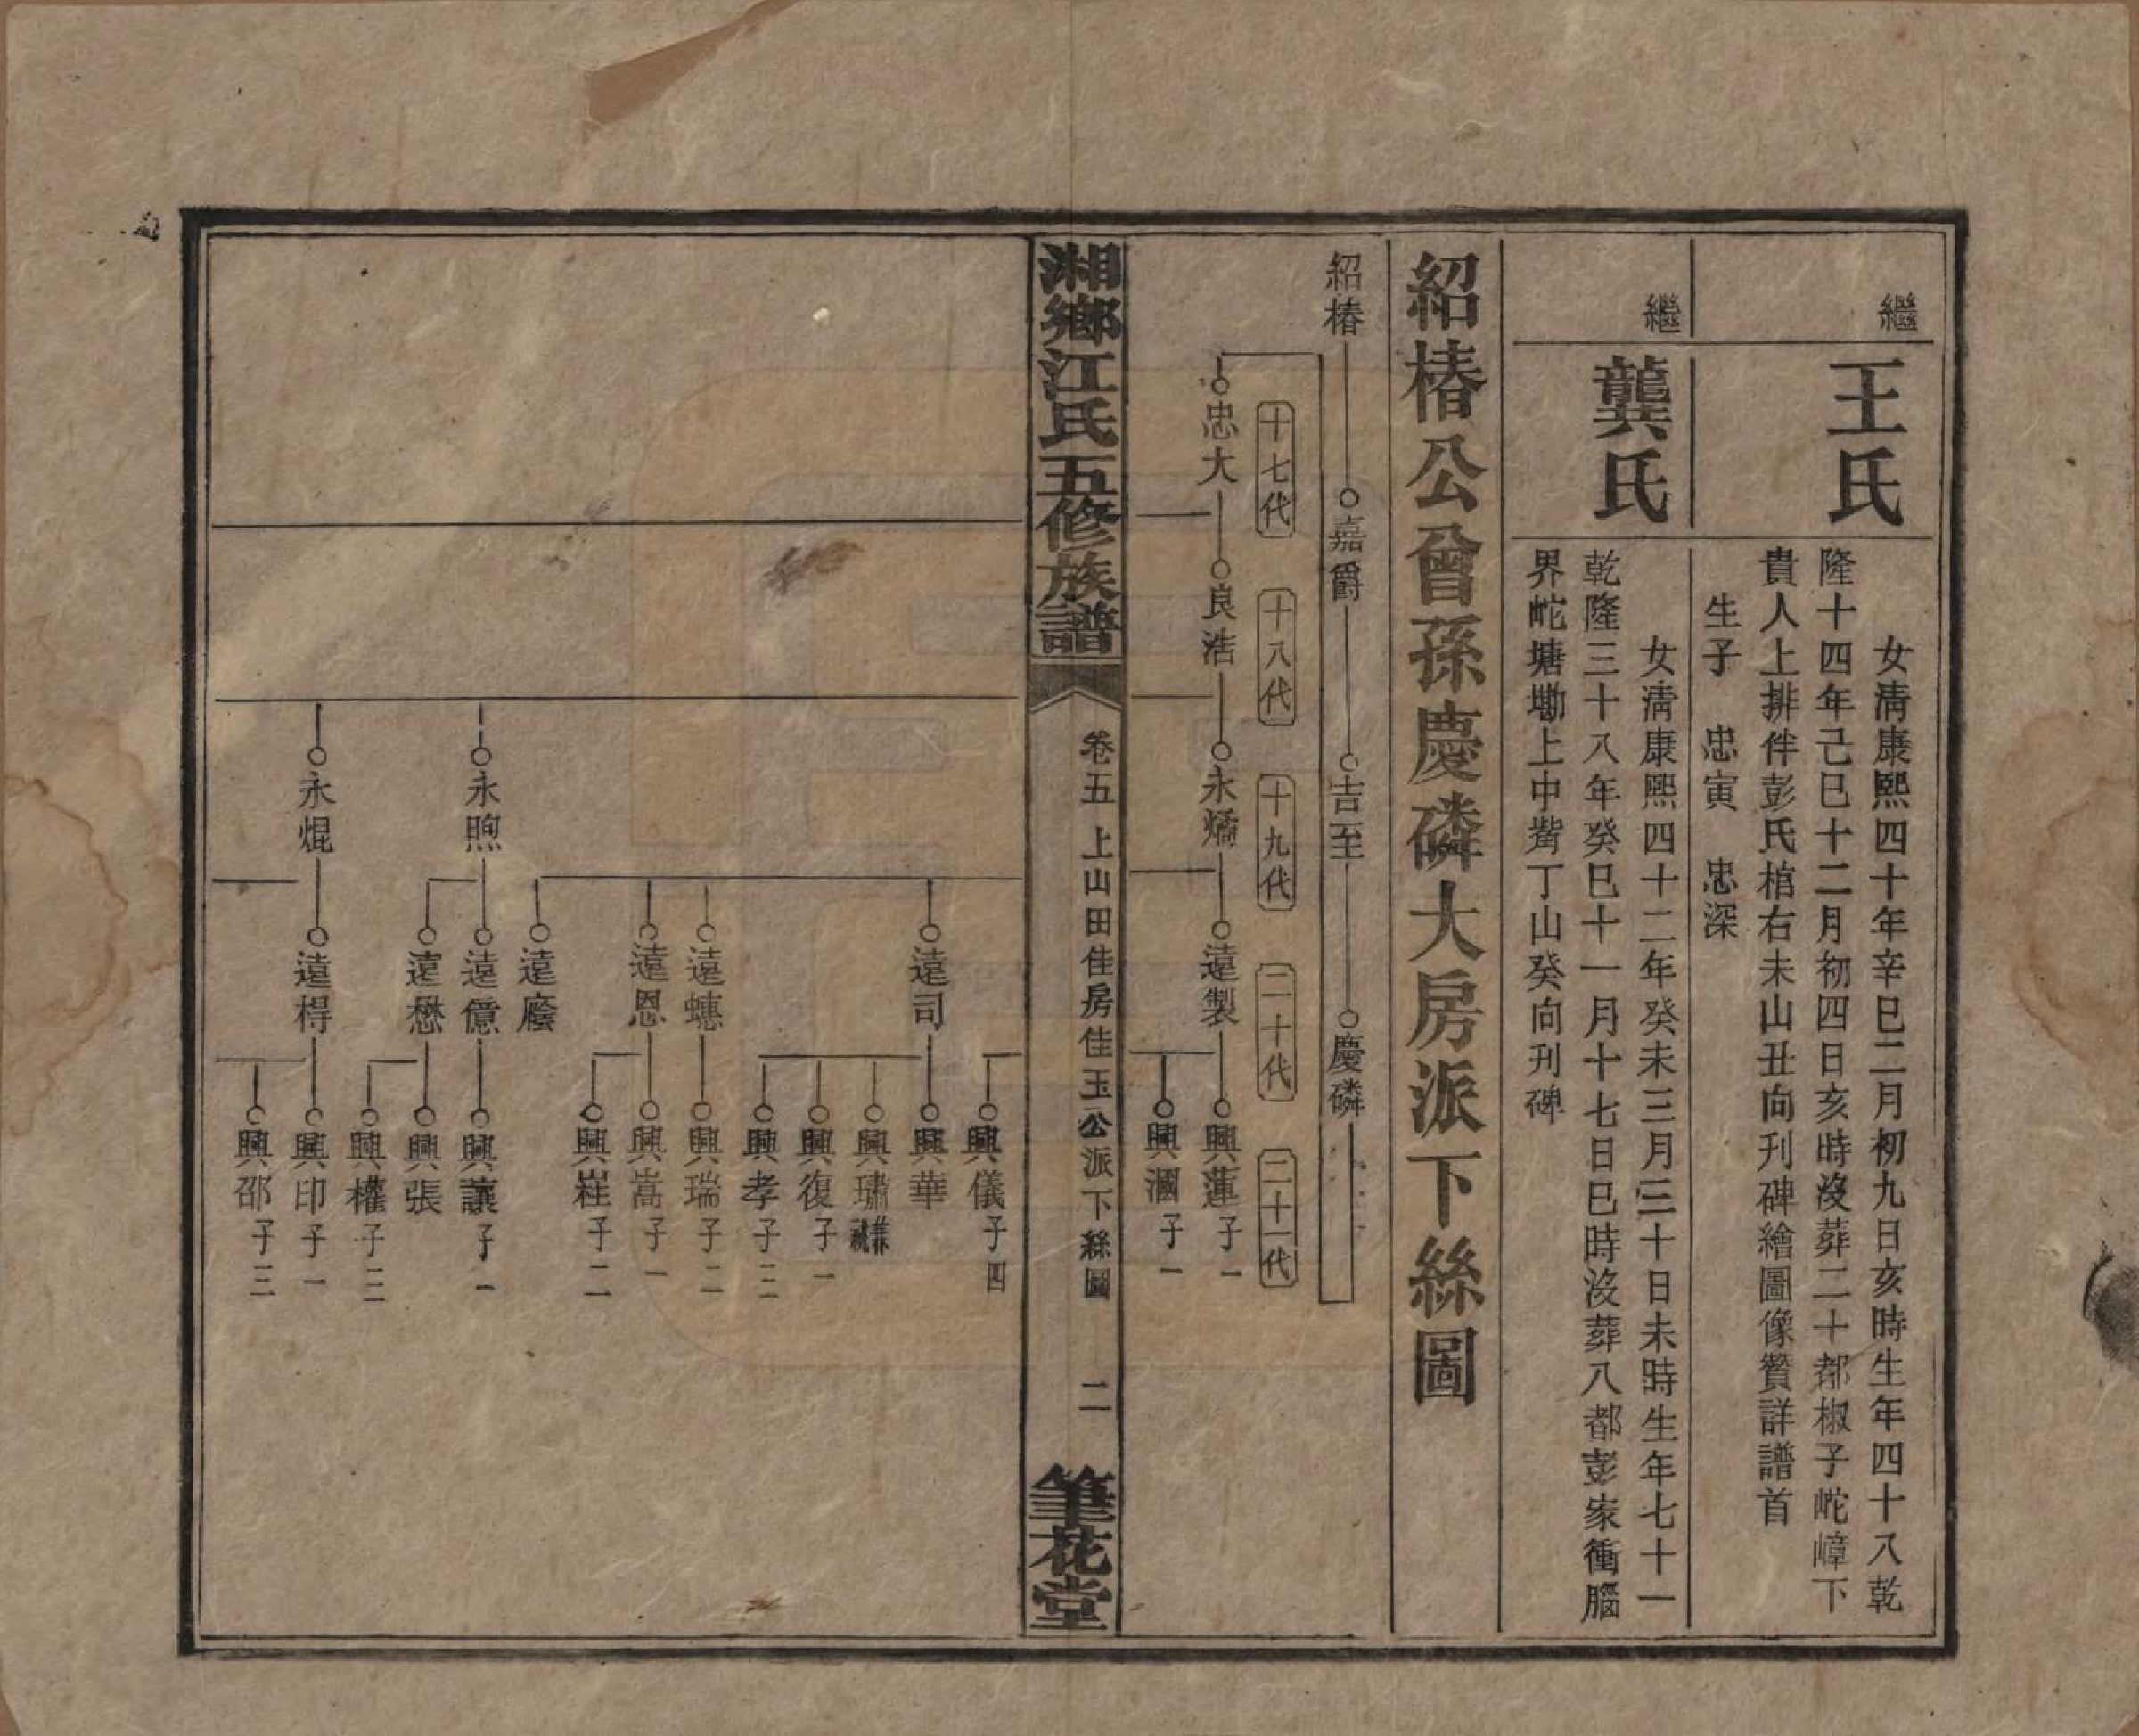 繼
王氏
女清康熙四十年辛巳二月初九日亥時生年四十八乾
隆十四年己巳十二月初四日亥時沒葬二十都椒子岮嶂下
貴人上排伴彭氏棺右未山丑向刊碑繪圖像贊詳譜首
生子 忠寅 忠深
繼
龔氏
女清康熙四十二年癸未三月三十日未時生年七十一
乾隆三十八年癸巳十一月十七日巳時沒葬八都彭家衝腦
界岮塘墈上中嵜丁山癸向刊碑
紹椿公曾孫慶磷大房派下絲圖
紹椿 嘉爵 吉至 慶磷
十七代 十八代 十九代 二十代 二十一代
忠大 良浩 永燆 遠製 興蓮 子一
興漍 子一
湘鄉江氏五修族譜
卷五 上山田佳房佳玉公派下絲圖 二
筆花堂
興儀 子四
遠司 興華
興璛 兼祧
興復 子一
興孝 子三
遠蟪 興瑞 子二
遠恩 興嵩 子一
興嵀 子二
遠廕
永煦 遠億 興讓 子一
遠懋 興張
興權 子三
永焜 遠棏 興印 子一
興邵 子三